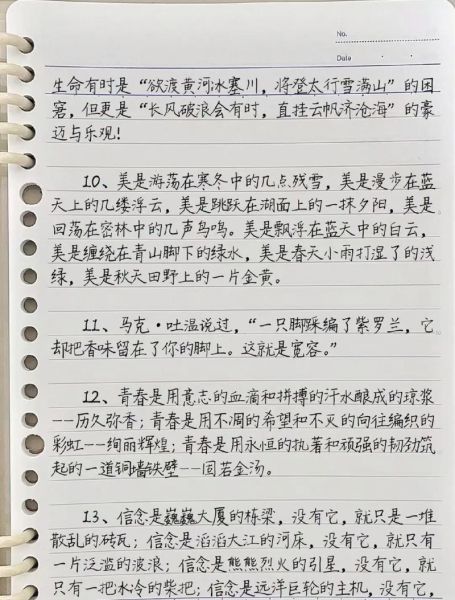 No.
Date
生命有时是“欲渡黄河冰塞川，将登太行雪满山”的困
窘，但更是“长风破浪会有时，直挂云帆济沧海”的豪
迈与乐观!
10、美是游荡在寒冬中的几点残雪，美是漫步在蓝
天上的几缕浮云，美是跳跃在湖面上的一抹夕阳，美是
回荡在密林中的几声鸟鸣。美是飘浮在蓝天中的白云，
美是缠绕在青山脚下的绿水，美是春天小雨打湿了的浅
绿，美是秋天田野上的一片金黄。
11、马克·吐温说过，“一只脚踩编了紫罗兰，它
却把香味留在了你的脚上。这就是宽容。”
12、青春是用意志的血滴和拼搏的汗水酿成的琼浆
--历久弥香；青春是用不凋的希望和不灭的向往编织的
彩虹--绚丽辉煌；青春是用永恒的执著和顽强的韧劲筑
起的一道铜墙铁壁--固若金汤。
13、信念是巍巍大厦的栋梁，没有它，就只是一堆
散乱的砖瓦；信念是滔滔大江的河床，没有它，就只有
一片泛滥的波浪；信念是熊熊烈火的引星，没有它，就
只有一把冰冷的柴把；信念是远洋巨轮的主机，没有它，